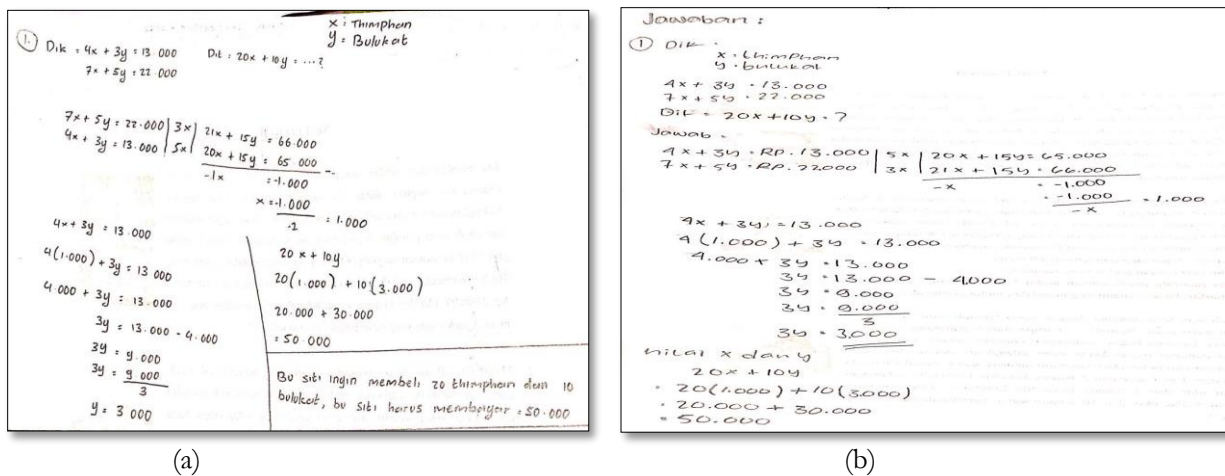 x : Thimphan
y : Bulukat
1. Dik : 4x + 3y = 13.000 Dit : 20x + 10y = ... ?
7x + 5y = 22.000
7x + 5y = 22.000 | 3x | 21x + 15y = 66.000
4x + 3y = 13.000 | 5x | 20x + 15y = 65.000 -
-1x = -1.000
x = -1.000
-1 = 1.000
4x + 3y = 13.000
4(1.000) + 3y = 13.000
4.000 + 3y = 13.000
3y = 13.000 - 4.000
3y = 9.000
3y = 9.000
3
y = 3.000
20x + 10y
20(1.000) + 10(3.000)
20.000 + 30.000
= 50.000
Bu siti ingin membeli 20 thimphan dan 10
bulukat, bu siti harus membayar = 50.000
(a)
Jawaban :
1 Dik :
x = thimphan
y = bulukat
4x + 3y = 13.000
7x + 5y = 22.000
Dit = 20x + 10y = ?
Jawab =
4x + 3y = RP. 13.000 | 5x | 20x + 15y = 65.000
7x + 5y = RP. 22.000 | 3x | 21x + 15y = 66.000
-x = -1.000
= -1.000
-x = 1.000
4x + 3y = 13.000
4(1.000) + 3y = 13.000
4.000 + 3y = 13.000
3y = 13.000 - 4.000
3y = 9.000
3y = 9.000
3
3y = 3.000
nilai x dan y
20x + 10y
= 20(1.000) + 10(3.000)
= 20.000 + 30.000
= 50.000
(b)